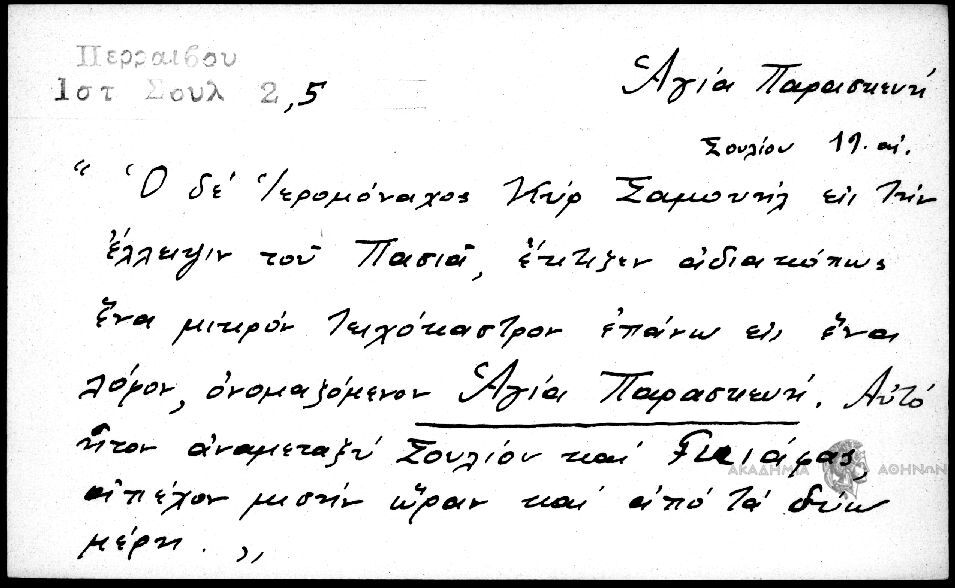 Περραιβου
Ιστ Σουλ 2,5
Ἁγία Παρασκευή
Σουλίου 19. αἰ.
“ Ὁ δέ Ἱερομόναχος Κύρ Σαμουήλ εἰς τήν
ἔλλειψιν τοῦ Πασιᾶ, ἔκτιζεν ἀδιακόπως
ἕνα μικρόν τειχόκαστρον ἐπάνω εἰς ἕνα
λόφον, ὀνομαζόμενον Ἁγία Παρασκευή. Αὐτό
ἦτον ἀναμεταξύ Σουλίου καί Γκιάφας,
ἀπέχον μισήν ὥραν καί ἀπό τά δύω
μέρη. „
ΑΚΑΔΗΜΙΑ ΑΘΗΝΩΝ